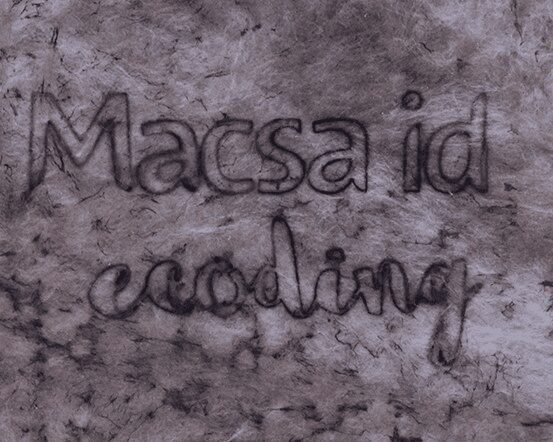 Macsa id
ecoding